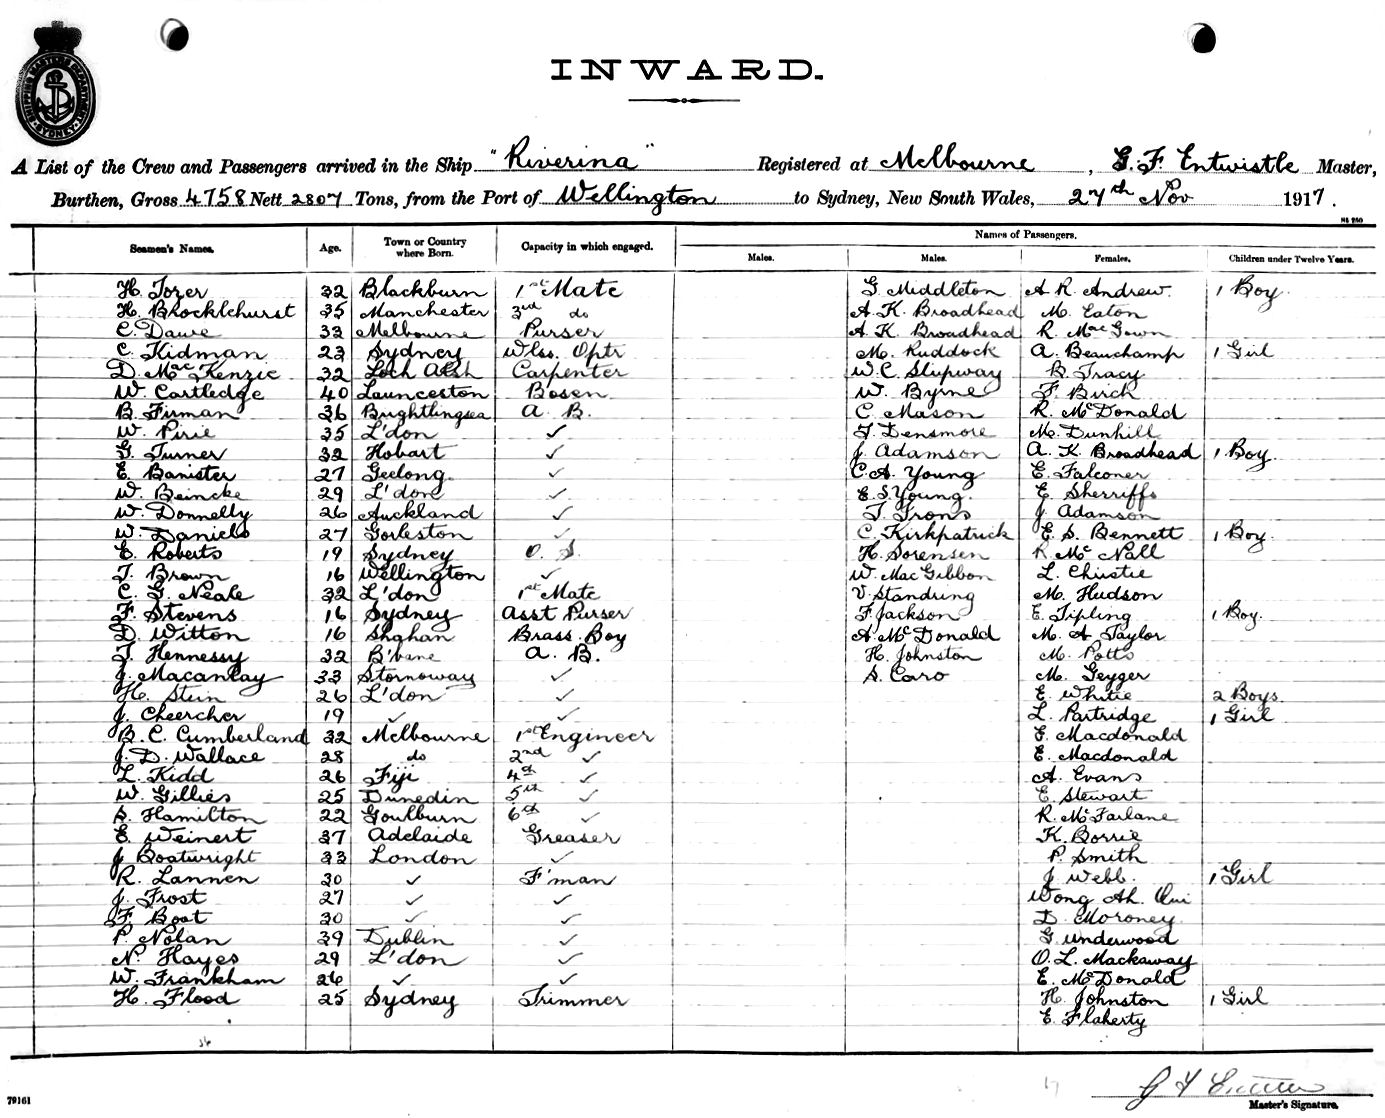 SHIPPING MASTER'S DEPARTMENT
SYDNEY
INWARD.
A List of the Crew and Passengers arrived in the Ship "Riverina" Registered at Melbourne, G. F. Entwistle Master,
Burthen, Gross 4758 Nett 2807 Tons, from the Port of Wellington to Sydney, New South Wales, 27th Nov 1917.
Names of Passengers.
Seamen's Names. Age. Town or Country where Born. Capacity in which engaged. Males. Males. Females. Children under Twelve Years.
H. Tozer 32 Blackburn 1st Mate G. Middleton A R. Andrew. 1 Boy.
H. Brocklehurst 35 Manchester 3rd do A K. Broadhead M. Eaton
C. Dawe 33 Melbourne Purser A K. Broadhead R. MacGown
C. Kidman 23 Sydney Wlss. Optr M. Ruddock A. Beauchamp 1 Girl
D. MacKenzie 32 Loch Alsh Carpenter W. C. Slipway B. Tracy
W. Cartledge 40 Launceston Bosen W. Byrne F. Birch
B. Firman 36 Brightlingsea A. B. C. Mason R. McDonald
W. Pirie 35 L'don ✓ T. Densmore M. Dunhill
G. Turner 32 Hobart ✓ J. Adamson A. K. Broadhead 1 Boy.
E. Banister 27 Geelong. ✓ C. A. Young E. Falconer
W. Beincke 29 L'don ✓ E. S. Young. E. Sherriffs
W. Donnelly 26 Auckland ✓ T. Irons J. Adamson
W. Daniels 27 Gorleston ✓ C. Kirkpatrick E. S. Bennett 1 Boy.
E. Roberts 19 Sydney O. S. H. Sorensen R. McNall
T. Brown 16 Wellington ✓ W. MacGibbon L. Christie
C. G. Neale 32 L'don 1st Mate V. Standring M. Hudson
F. Stevens 16 Sydney Asst Purser F. Jackson E. Tipling 1 Boy.
D. Witton 16 Shghan Brass. Boy A. McDonald M. A Taylor
T. Hennessy 32 B'bane A. B. H. Johnston M. Potts
J. Macanlay 33 Stornoway ✓ S. Caro M. Geyger
H. Stein 26 L'don ✓ E. White 2 Boys.
J. Cheercher 19 ✓ ✓ L. Partridge 1 Girl
B. C. Cumberland 32 Melbourne 1st Engineer F. Macdonald
J. D. Wallace 28 do 2nd ✓ E. Macdonald
L. Kidd 26 Fiji 4th ✓ A. Evans
W. Gillies 25 Dunedin 5th ✓ E. Stewart
S. Hamilton 22 Goulburn 6th ✓ R. McFarlane
E. Weinert 37 Adelaide Greaser K. Borrie
J. Boatwright 33 London ✓ P. Smith
R. Lannen 30 ✓ F'man J. Webb. 1 Girl
J. Frost 27 ✓ ✓ Wong Ah.
F. Boat 30 ✓ ✓ D. Moroney.
P. Nolan 39 Dublin ✓ G. Underwood
N. Hayes 29 L'don ✓ O. L. Mackaway
W. Frankham 26 ✓ ✓ E. McDonald
H. Flood 25 Sydney Trimmer H. Johnston 1 Girl
E. Flaherty
36
79161
Master's Signature.